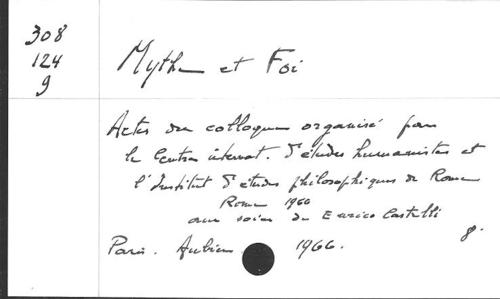 308
124
9
Mythe et Foi
Actes du colloque organisé par
le Centre internat. d'études humanistes et
l'Institut d'études philosophiques de Rome
Rome 1966
aux soins de Enrico Castelli
Paris. Aubier 1966. 8.